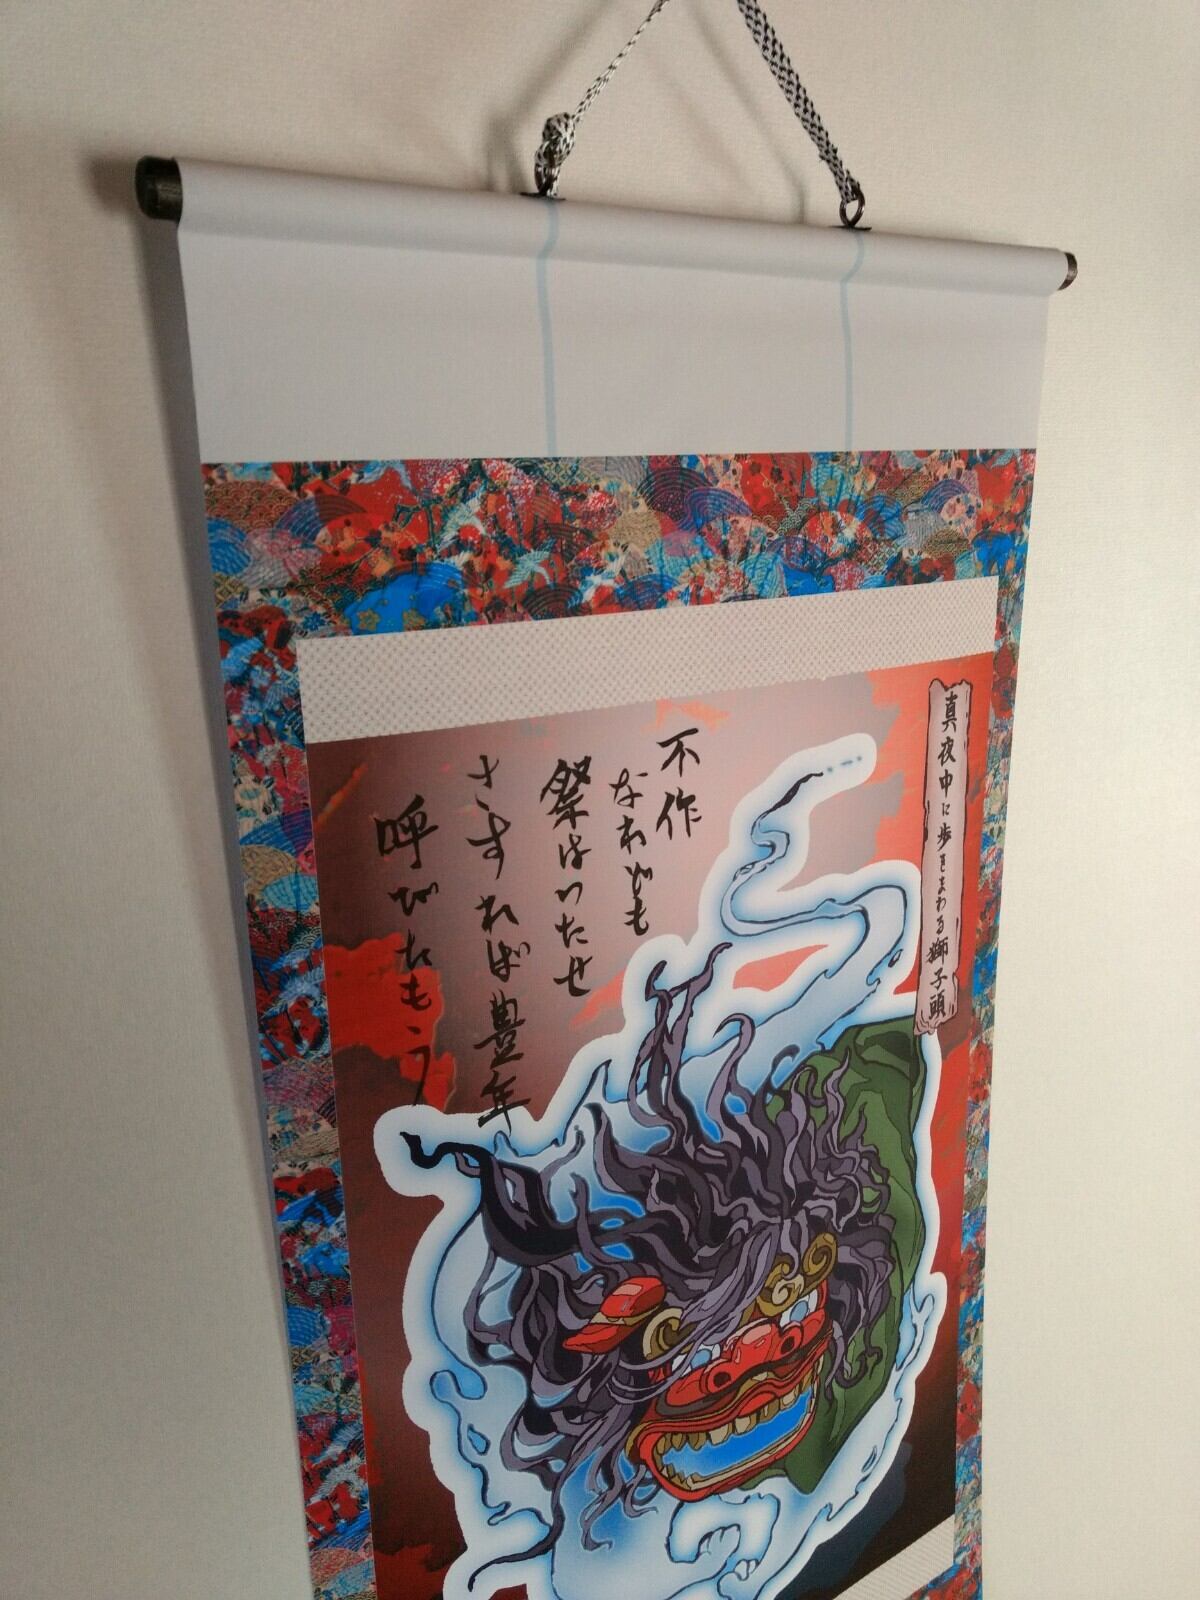 真夜中に歩きまわる獅子頭
不作
なれども
祭はいたせ
さすれば豊年
呼びたもう